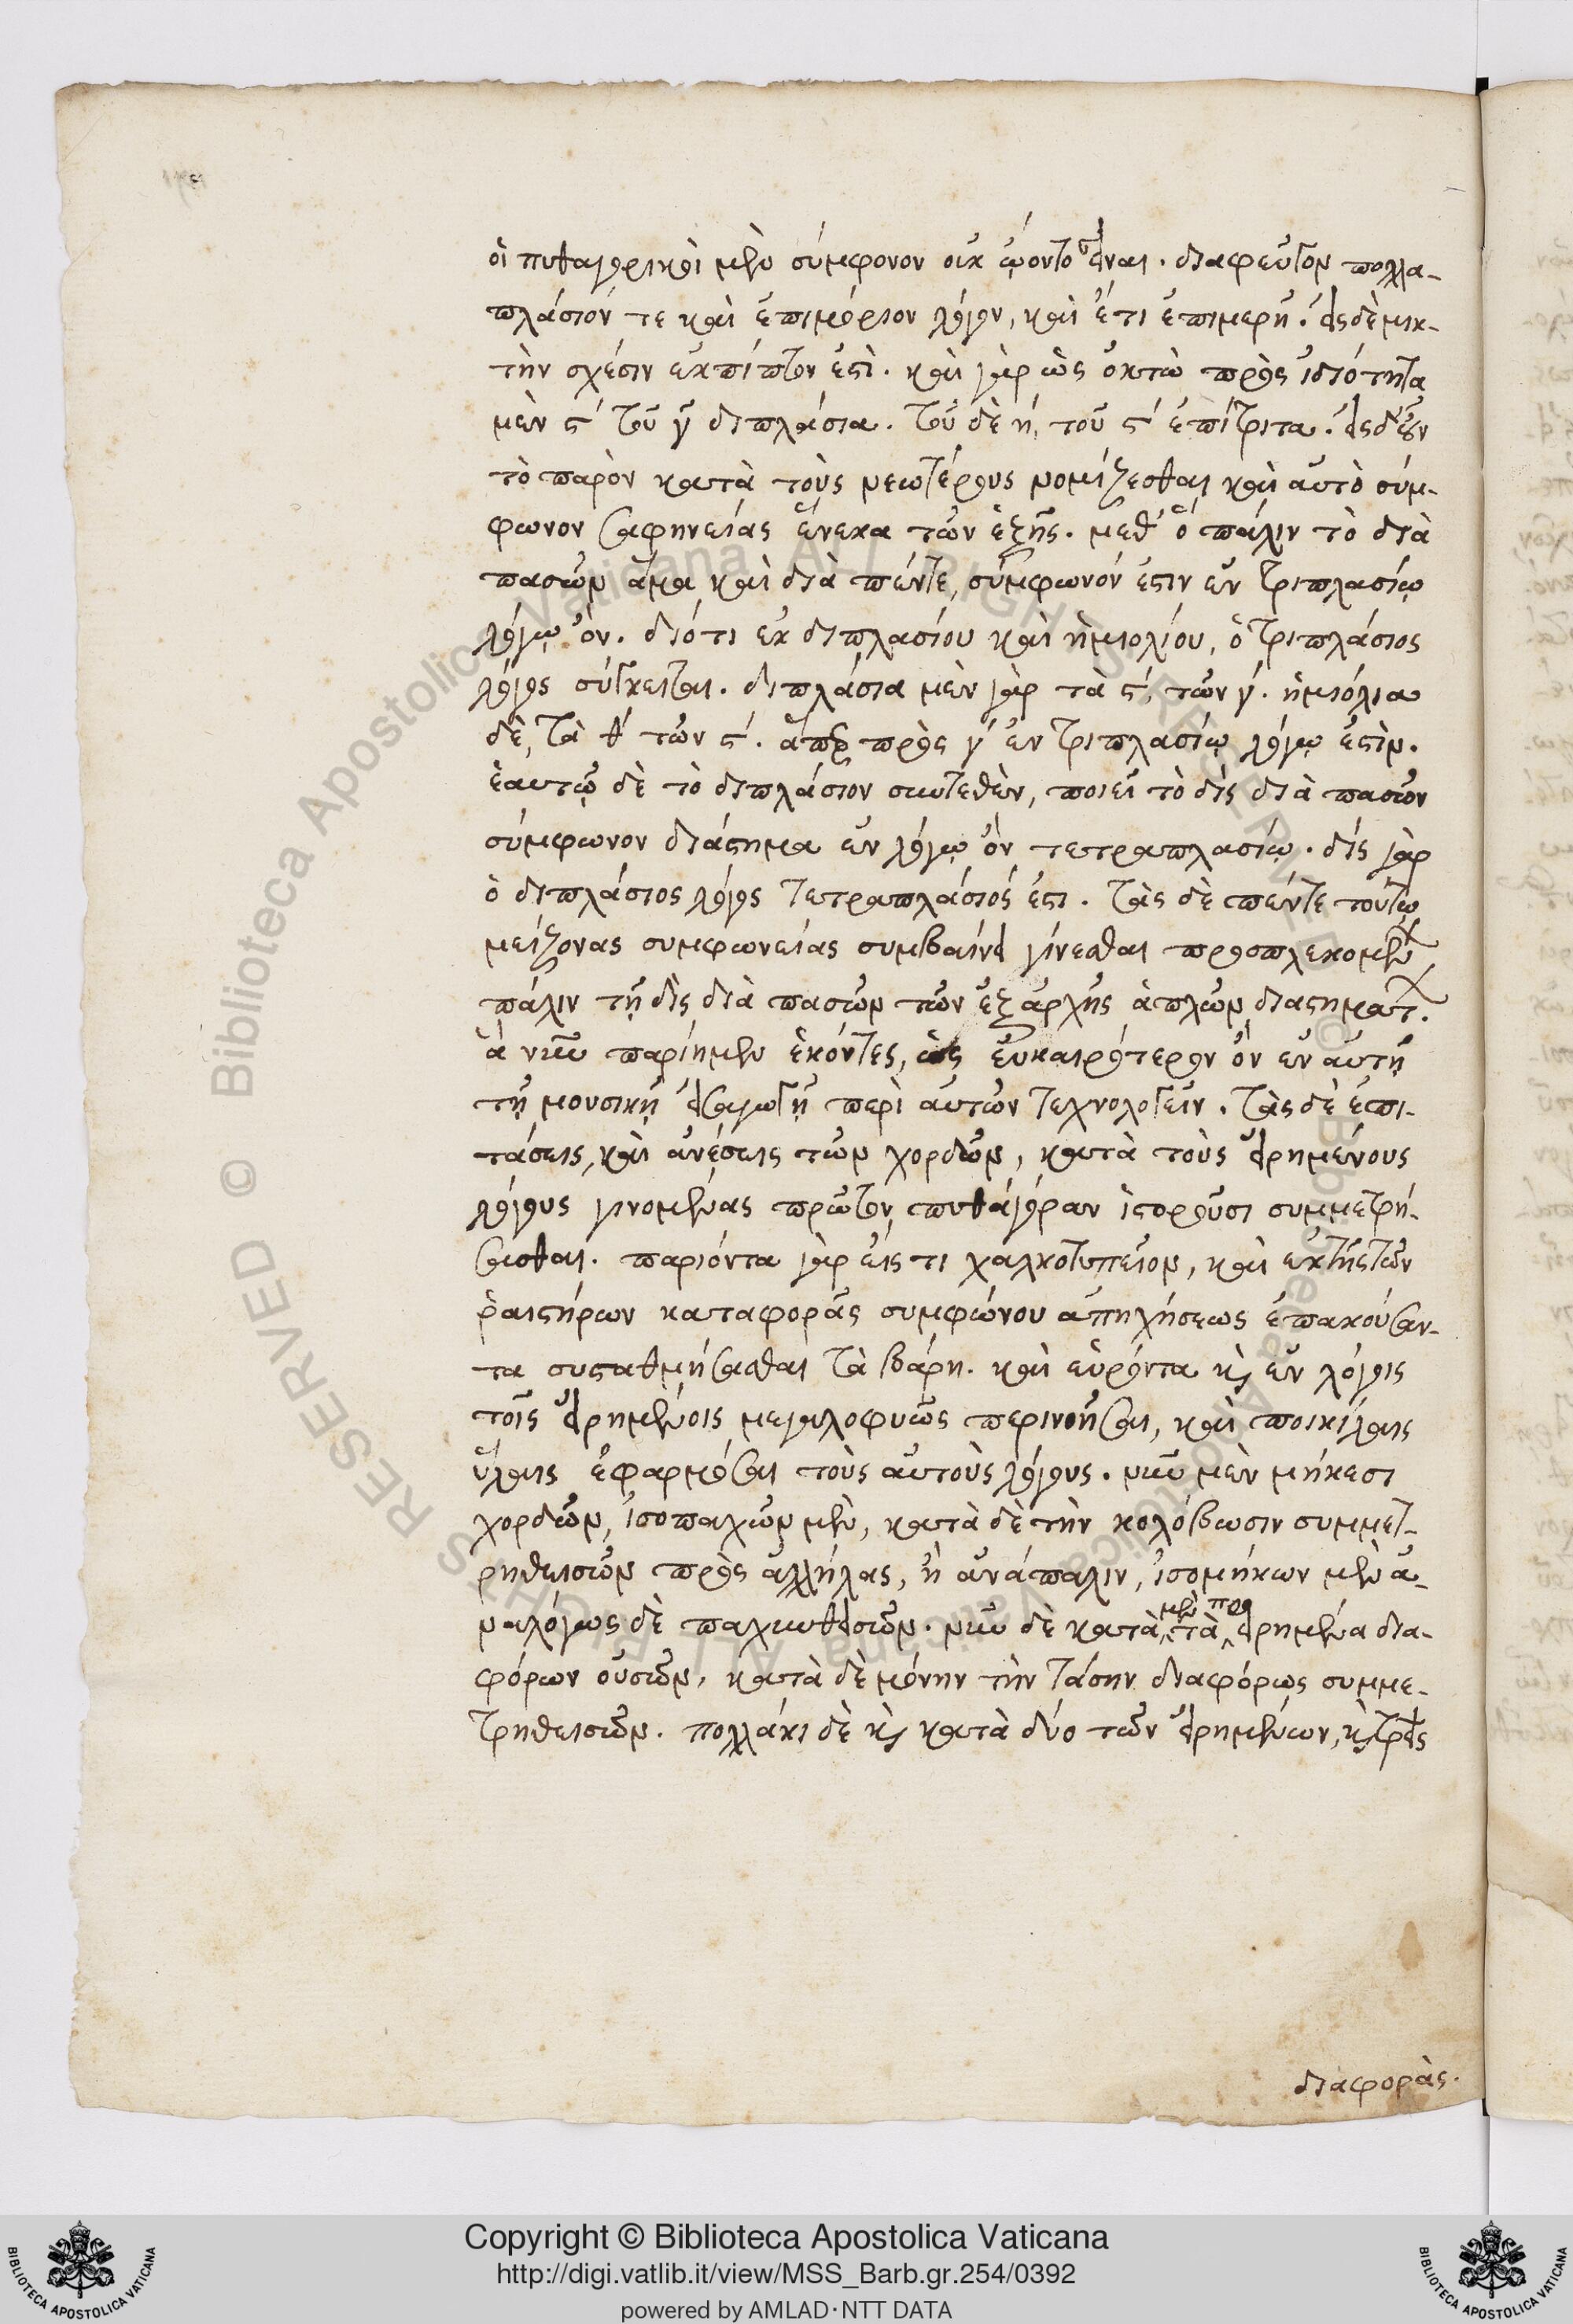 οἱ πυθαγορικοὶ μὲν σύμφονον οὐκ ὤοντο εἶναι. διαφεῦγον πολλα-
πλάσιόν τε καὶ ἐπιμόριον λόγον, καὶ ἔτι ἐπιμερῆ. εἰς δὲ μικ-
τὴν σχέσιν ἐκπίπτον ἐστὶ. καὶ γὰρ ὡς ὀκτὼ πρὸς ἰδιότητα
μὲν ϛ´ τοῦ γ̄ διπλάσια. τοῦ δὲ ή, τοῦ ϛ´ ἐπίτριτα.
τὸ παρὸν κατὰ τοὺς νεωτέρους νομίζεσθαι καὶ αὐτὸ σύμ-
φωνον σαφηνείας ἕνεκα τῶν ἑξῆς. μεθ' ὃ πάλιν τὸ διὰ
πασῶν ἅμα καὶ διὰ πέντε, σύμφωνόν ἐστιν ἐν τριπλασίῳ
λόγῳ ὄν. διότι ἐκ διπλασίου καὶ ἡμιολίου, ὁ τριπλάσιος
λόγος σύγκειται. διπλάσια μὲν γὰρ τὰ ϛ´, τῶν γ´. ἡμιόλια
δὲ, τὰ θ´ τῶν ϛ´. ἅπερ πρὸς γ´ ἐν τριπλασίῳ λόγῳ ἐστὶν.
ἑαυτῷ δὲ τὸ διπλάσιον συντεθὲν, ποιεῖ τὸ δὶς διὰ πασῶν
σύμφωνον διάστημα ἐν λόγῳ ὂν τετραπλασίῳ. δίς γὰρ
ὁ διπλάσιος λόγος τετραπλάσιός ἐστι. τὰς δὲ πέντε τούτῳ
μείζονας συμφωνείας συμβαίνει γίνεσθαι προσπλεκομένων
πάλιν τῇ δὶς διὰ πασῶν τῶν ἐξ ἀρχῆς ἁπλῶν διαστημάτων.
ἃ νῦν παρίημεν ἑκόντες, ὡς εὐκαιρότερον ὂν ἐν αὐτῇ
τῇ μουσικῇ εἰσαγωγῇ περὶ αὐτῶν τεχνολογεῖν. τὰς δὲ ἐπι-
τάσεις, καὶ ἀνέσεις τῶν χορδῶν, κατὰ τοὺς εἰρημένους
λόγους γινομένας πρῶτον πυθάγοραν ἱστοροῦσι συμμετρή-
σασθαι. παριόντα γὰρ εἴς τι χαλκοτυπεῖον, καὶ ἐκ τῆς τῶν
ῥαιστήρων καταφορᾶς συμφώνου ἀπηχήσεως ἐπακούσαν-
τα συσταθμήσασθαι τὰ βάρη. καὶ εὑρόντα καὶ ἐν λόγοις
τοῖς εἰρημένοις μεγαλοφυῶς περινοῆσαι, καὶ ποικίλαις
ὕλαις ἐφαρμόσαι τοὺς αὐτοὺς λόγους. νῦν μὲν μήκεσι
χορδῶν, ἰσοπαχῶν μὲν, κατὰ δὲ τὴν κολόβωσιν συμμετ-
ρηθεισῶν πρὸς ἀλλήλας, ἢ ἀνάπαλιν, ἰσομήκων μὲν ἀ-
ναλόγως δὲ παχυνθεισῶν. νῦν δὲ κατὰ μὲν τὰ προειρημένα δια-
φόρων οὐσῶν, κατὰ δὲ μόνην τὴν τάσην διαφόρως συμμε-
τρηθεισῶν. πολλάκι δὲ καὶ κατὰ δύο τῶν εἰρημένων, καὶ τρεῖς
διαφοράς.
RESERVED © Biblioteca Apostolica Vaticana ALL RIGHTS RESERVED © Biblioteca Apostolica Vaticana ALL RIGHTS
Copyright © Biblioteca Apostolica Vaticana
http://digi.vatlib.it/view/MSS_Barb.gr.254/0392
powered by AMLAD·NTT DATA
BIBLIOTECA APOSTOLICA VATICANA
BIBLIOTECA APOSTOLICA VATICANA